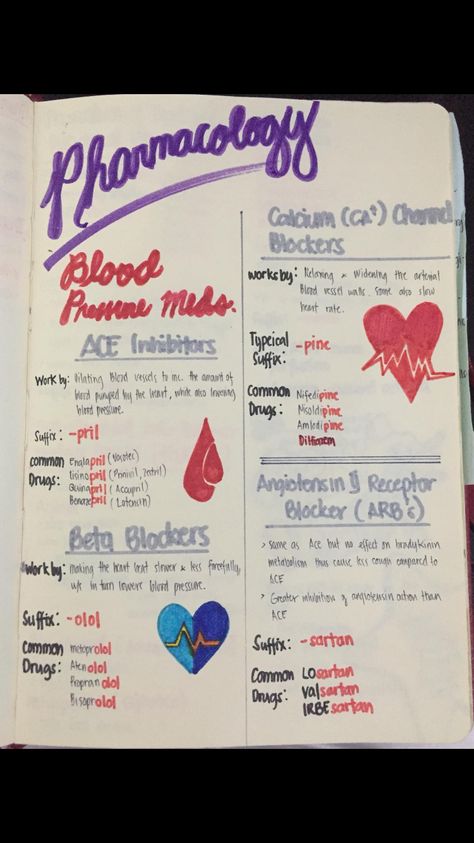 Pharmacology
Blood
Pressure Meds.
ACE Inhibitors
Work by: Dilating Blood vessels to inc. the amount of
blood pumped by the heart, while also lowering
blood pressure.
Suffix: -pril
Common Drugs:
Enalapril (Vasotec)
Lisinopril (Prinivil, Zestril)
Quinapril (Accupril)
Benazepril (Lotensin)
Beta Blockers
Work by: making the heart beat slower & less forcefully,
in turn lowers blood pressure.
Suffix: -olol
Common Drugs:
metoprolol
Atenolol
Propranolol
Bisoprolol
Calcium (CA⁺) Channel
Blockers
Works by: Relaxing & Widening the arterial
Blood vessel walls. Some also slow
heart rate.
Typeical
Suffix: -pine
Common Drugs:
Nifedipine
Nisoldipine
Amlodipine
Diltiazem
Angiotensin II Receptor
Blocker (ARB's)
> same as Ace but no effect on bradykinin
metabolism thus cause less cough compared to
ACE
> Greater inhibition of angiotensin action than
ACE
Suffix: -sartan
Common Drugs:
LOsartan
Valsartan
IRBEsartan